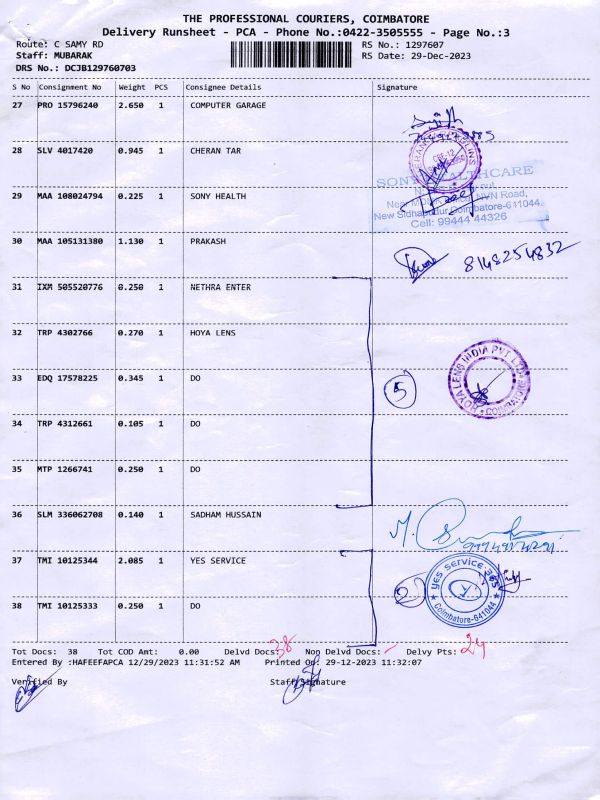 THE PROFESSIONAL COURIERS, COIMBATORE
Delivery Runsheet - PCA - Phone No.:0422-3505555 - Page No.:3
Route: C SAMY RD RS No.: 1297607
Staff: MUBARAK RS Date: 29-Dec-2023
DRS No.: DCJB129760703
S No Consignment No Weight PCS Consignee Details Signature
27 PRO 15796240 2.650 1 COMPUTER GARAGE
28 SLV 4017420 0.945 1 CHERAN TAR
29 MAA 108024794 0.225 1 SONY HEALTH
SONY HEALTHCARE
NVN Road,
New Sidhapudur, Coimbatore-641044.
Cell: 99444 44326
30 MAA 105131380 1.130 1 PRAKASH
8148254832
31 IXM 505520776 0.250 1 NETHRA ENTER
32 TRP 4302766 0.270 1 HOYA LENS
HOYA LENS INDIA PVT. LTD.
COIMBATORE
33 EDQ 17578225 0.345 1 DO
5
34 TRP 4312661 0.105 1 DO
35 MTP 1266741 0.250 1 DO
36 SLM 336062708 0.140 1 SADHAM HUSSAIN
37 TMI 10125344 2.085 1 YES SERVICE
2
YES SERVICE 365
Coimbatore-641044
38 TMI 10125333 0.250 1 DO
Tot Docs: 38 Tot COD Amt: 0.00 Delvd Docs: 38 Non Delvd Docs: - Delvy Pts: 24
Entered By :HAFEEFAPCA 12/29/2023 11:31:52 AM Printed On: 29-12-2023 11:32:07
Verified By Staff Signature